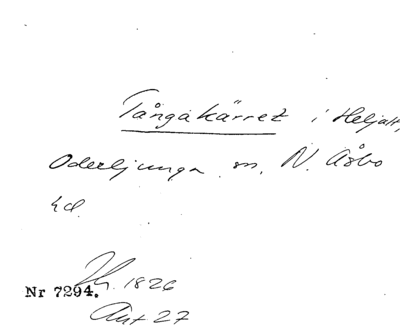 Tångakärret i Heljalt,
Oderljunga sn, N. Åsbo
hd.
1826
Nr 7294.
Akt 27